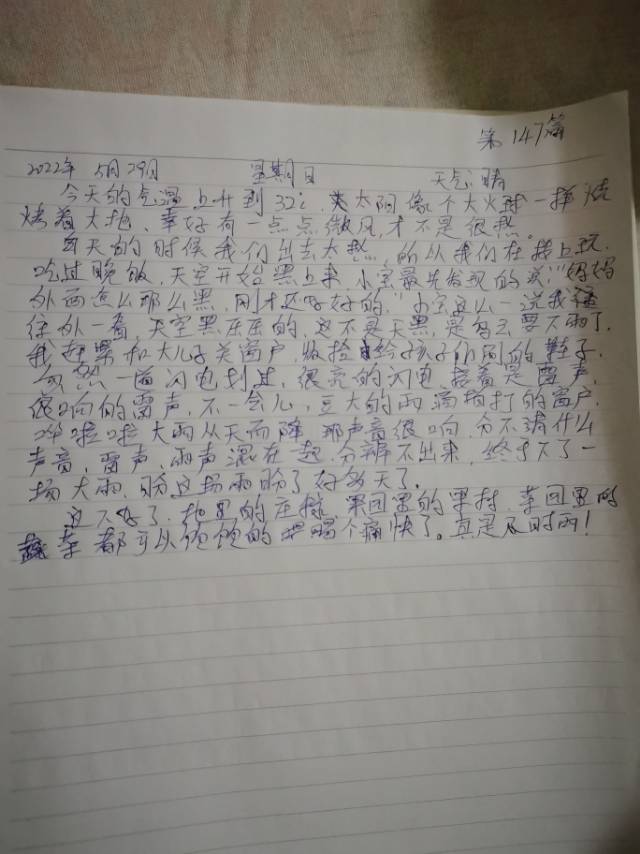 第147篇
2022年 5月29日 星期日 天气:晴
今天的气温上升到32℃,太阳像个大火球一样烧
烤着大地,幸好有一点点微风,才不是很热。
白天的时候我们出去太热,所以我们在楼上玩.
吃过晚饭,天空开始黑上来,小宝最先发现的说:"妈妈
外面怎么那么黑,刚才还好好的."小宝这么一说我往
往外一看,天空黑压压的,这不是天黑,是乌云要下雨了.
我赶紧和大儿子关窗户,收捡给孩子们刷的鞋子.
忽然一道闪电划过,很亮的闪电,接着是雷声,
很响的雷声,不一会儿,豆大的雨滴拍打的窗户,
哗啦啦大雨从天而降,那声音很响,分不清什么
声音,雷声,雨声混在一起,分辨不出来,终于下了一
场大雨,盼这场雨盼了好多天了.
这下好了,地里的庄稼,果园里的果树,菜园里的
蔬菜都可以饱饱的喝个痛快了。真是及时雨!